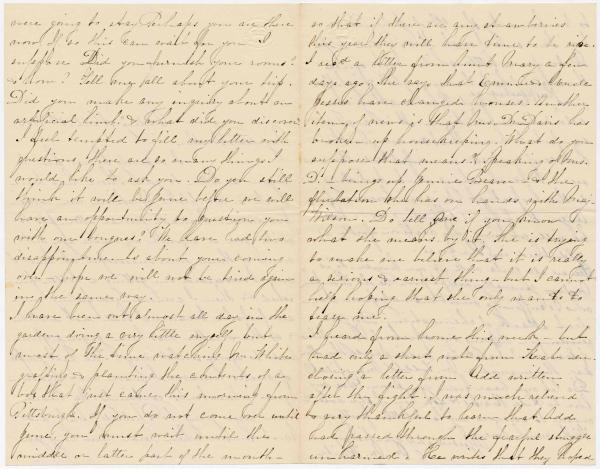 were going to stay. Perhaps you are there
now. If so this can wait for you. I
suppose Did you furnish your rooms?
& how? Tell me all about your trip.
Did you make any inquiry about an
artificial limb? & what did you discover.
I feel tempted to fill my letter with
questions, there are so many things I
would like to ask you. Do you still
think it will be June before we will
have an opportunity to question you
with our tongues? We have had two
disappointments about your coming
over - hope we will not be tried again
in the same way.
I have been out almost all day in the
garden doing a very little myself but
most of the time watching Mr. White
grafting & planting the contents of a
box that just came this morning from
Pittsburgh. If you do not come over until
June, you must wait until the
middle or latter part of the month -
so that if there are any strawberries
this year they will have time to be ripe.
I rec'd a letter from Aunt Mary a few
days ago, she says that Emma & Uncle
have changed houses. Another
item of news is that Mrs. Dr. Davis has
broken up housekeeping. What do you
suppose that means? Speaking of Mrs.
D. - brings up Annie & the
flirtation she has on hands with Maj.
Do tell me if you know
what she means by it. She is trying
to make me believe that it is really
a serious & earnest thing - but I cannot
help hoping that she only wants to
tease me.
I heard from home this week - but
had only a short note from Kate en-
closing a letter from Add written
after the fight. I was much relieved
& very thankful to learn that Add
had passed through the fearful struggle
unharmed. He writes that they hoped